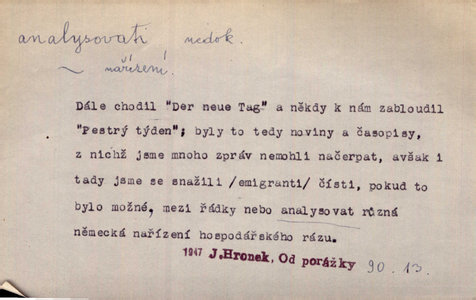 analysovati nedok.
~ nařízení.
Dále chodil "Der neue Tag" a někdy k nám zabloudil
"Pestrý týden"; byly to tedy noviny a časopisy,
z nichž jsme mnoho zpráv nemohli načerpat, avšak i
tady jsme se snažili /emigranti/ čísti, pokud to
bylo možné, mezi řádky nebo analysovat různá
německá nařízení hospodářského rázu.
1947 J.Hronek, Od porážky 90.13.